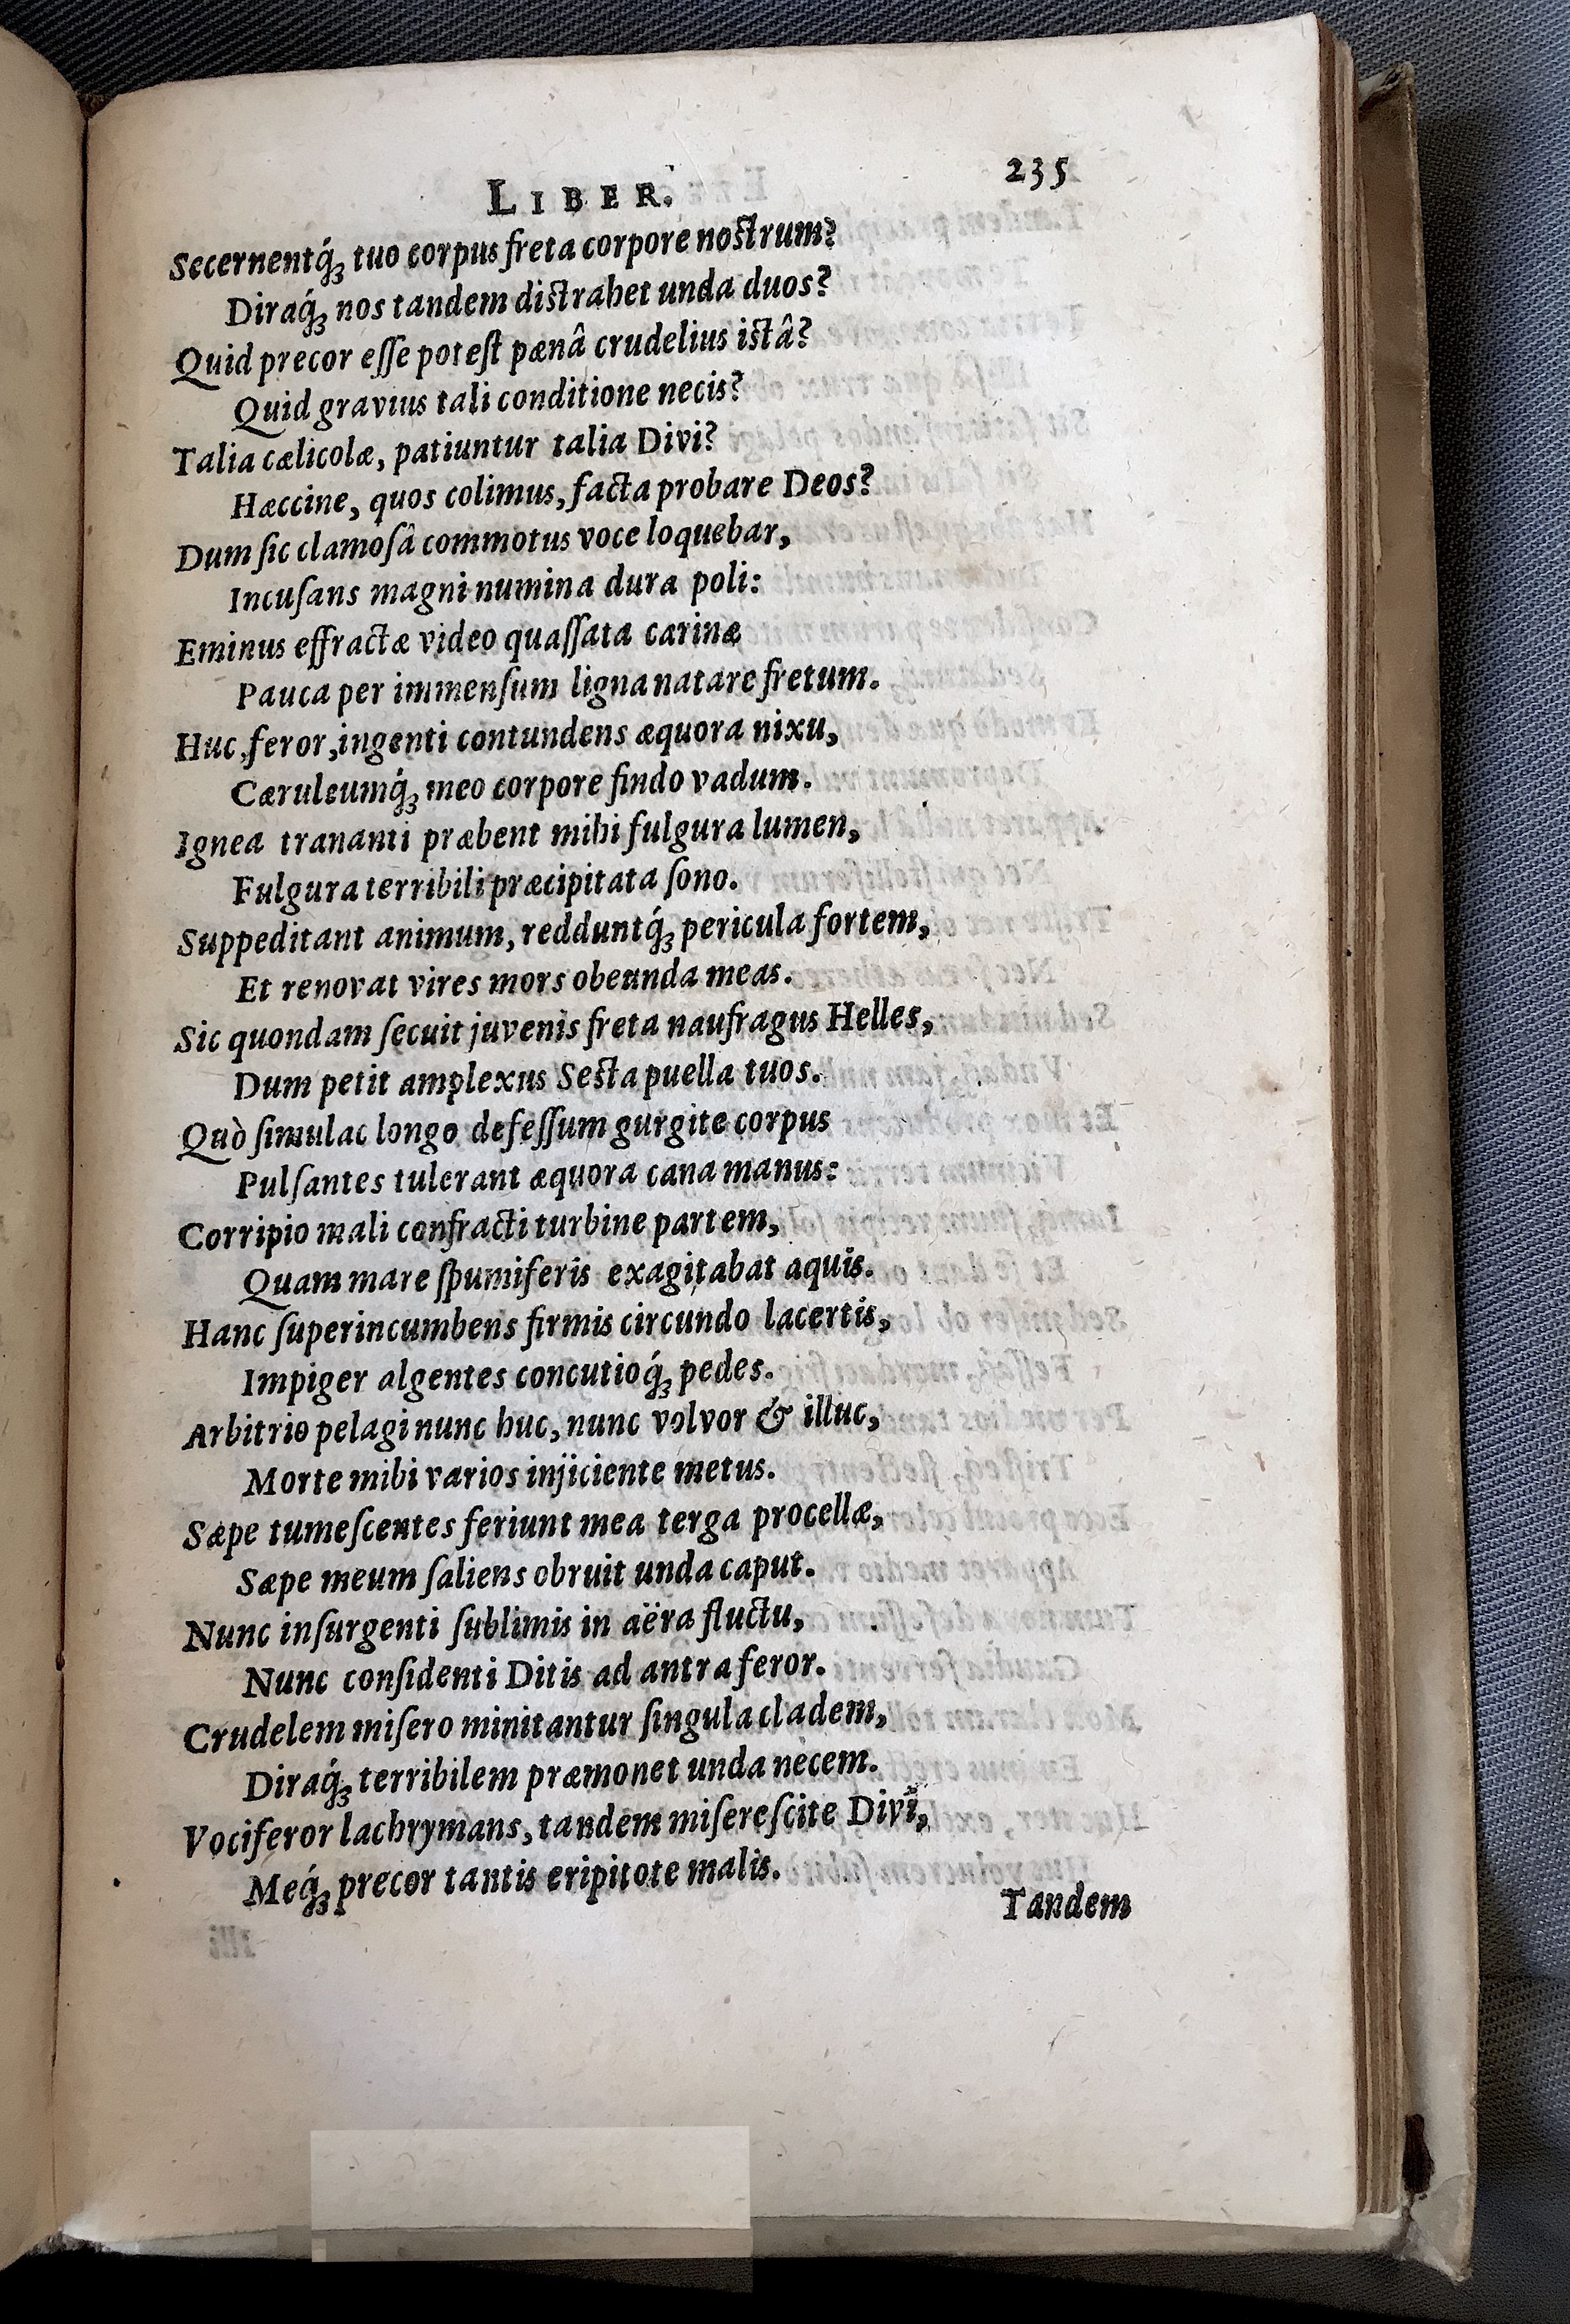 LIBER. 235
Secernentq́ꝫ tuo corpus freta corpore nostrum?
Diraq́ꝫ nos tandem distrahet unda duos?
Quid precor eſſe poteſt pœnâ crudelius istâ?
Quid gravius tali conditione necis?
Talia cælicolæ, patiuntur talia Divi?
Hæccine, quos colimus, facta probare Deos?
Dum ſic clamoſâ commotus voce loquebar,
Incuſans magni numina dura poli:
Eminus effractæ video quaſſata carinæ
Pauca per immenſum ligna natare fretum.
Huc feror, ingenti contundens æquora nixu,
Cæruleumq́ꝫ meo corpore findo vadum.
Ignea trananti præbent mihi fulgura lumen,
Fulgura terribili præcipitata ſono.
Suppeditant animum, redduntq́ꝫ pericula fortem,
Et renovat vires mors obeunda meas.
Sic quondam ſecuit juvenis freta naufragus Helles,
Dum petit amplexus Sesta puella tuos.
Quò ſimulac longo defeſſum gurgite corpus
Pulſantes tulerant æquora cana manus:
Corripio mali confracti turbine partem,
Quam mare ſpumiferis exagitabat aquis.
Hanc ſuperincumbens firmis circundo lacertis,
Impiger algentes concutioq́ꝫ pedes.
Arbitrio pelagi nunc huc, nunc volvor & illuc,
Morte mihi varios injiciente metus.
Sæpe tumeſcentes feriunt mea terga procellæ,
Sæpe meum ſaliens obruit unda caput.
Nunc inſurgenti ſublimis in aëra fluctu,
Nunc conſidenti Ditis ad antra feror.
Crudelem miſero minitantur ſingula cladem,
Diraq́ꝫ terribilem præmonet unda necem.
Vociferor lachrymans, tandem miſereſcite Divi,
Meq́ꝫ precor tantis eripitote malis.
Tandem